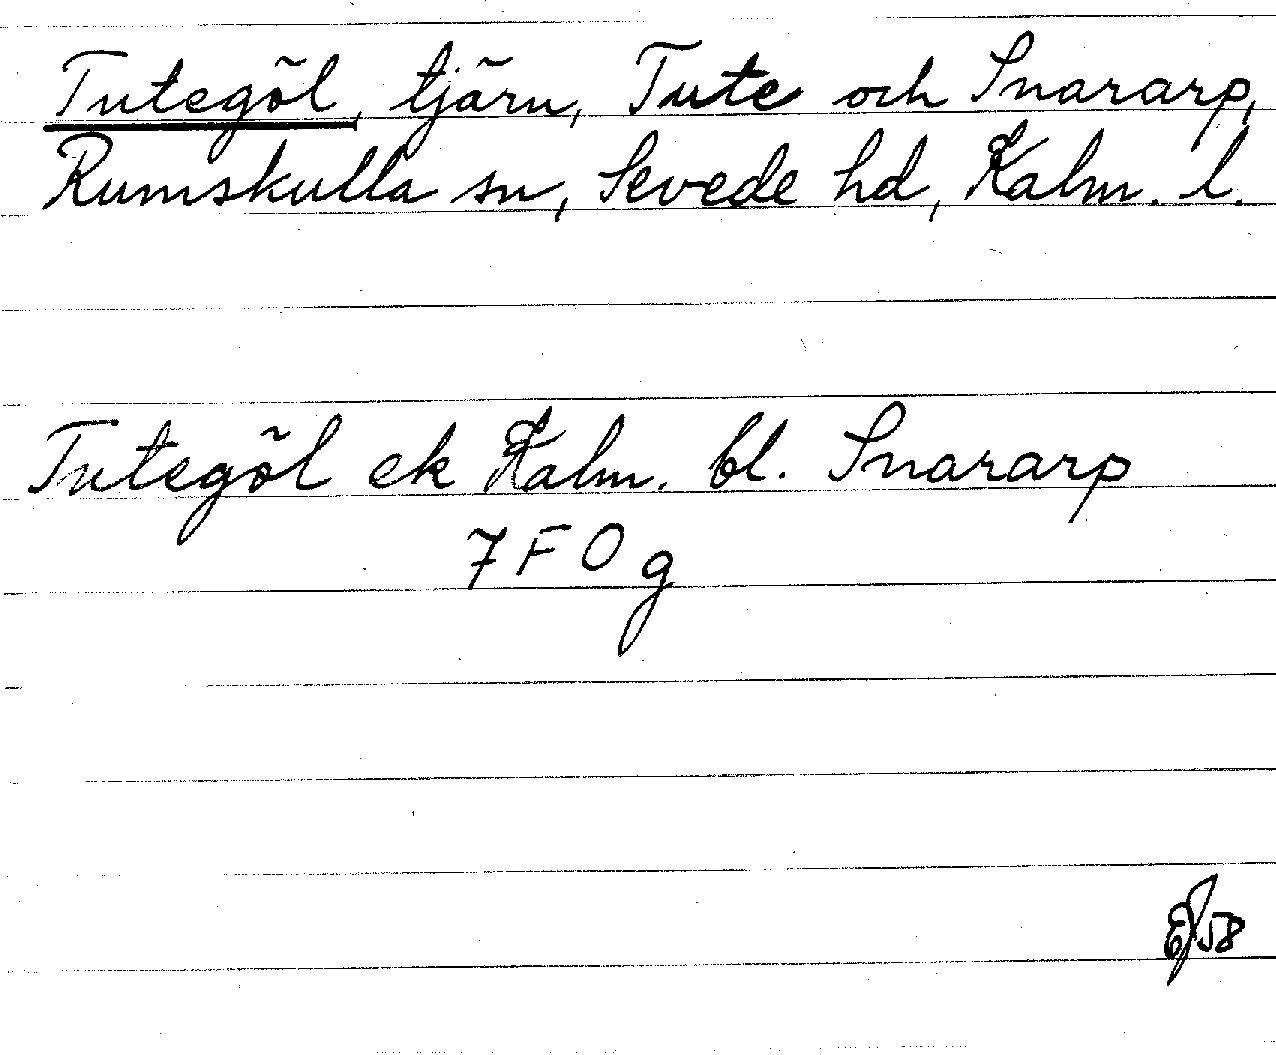 Tutegöl, tjärn, Tute och Snararp,
Rumskulla sn, Sevede hd, Kalm. l.
Tutegöl ek Kalm. bl. Snararp
7 F O g
58